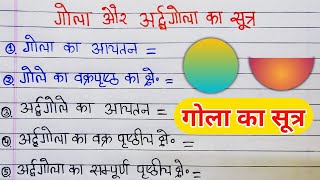 गोला और अर्द्धगोला का सूत्र
① गोला का आयतन =
② गोले का वक्रपृष्ठ का क्षे॰ =
③ अर्द्धगोले का आयतन =
④ अर्द्वगोला का वक्र पृष्ठीय क्षे॰ =
⑤ अर्द्वगोला का सम्पूर्ण पृष्ठीय क्षे॰ =
गोला का सूत्र